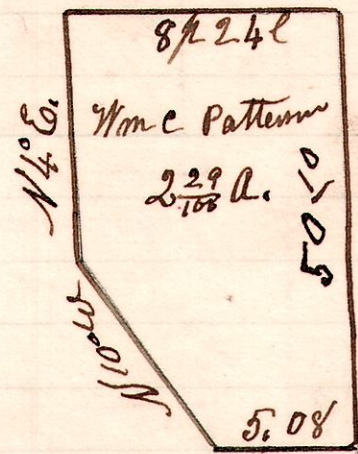 8p 24l
Wm C Patterson
2 29/100 A.
N 4° E.
5050
N 10° W
5.08